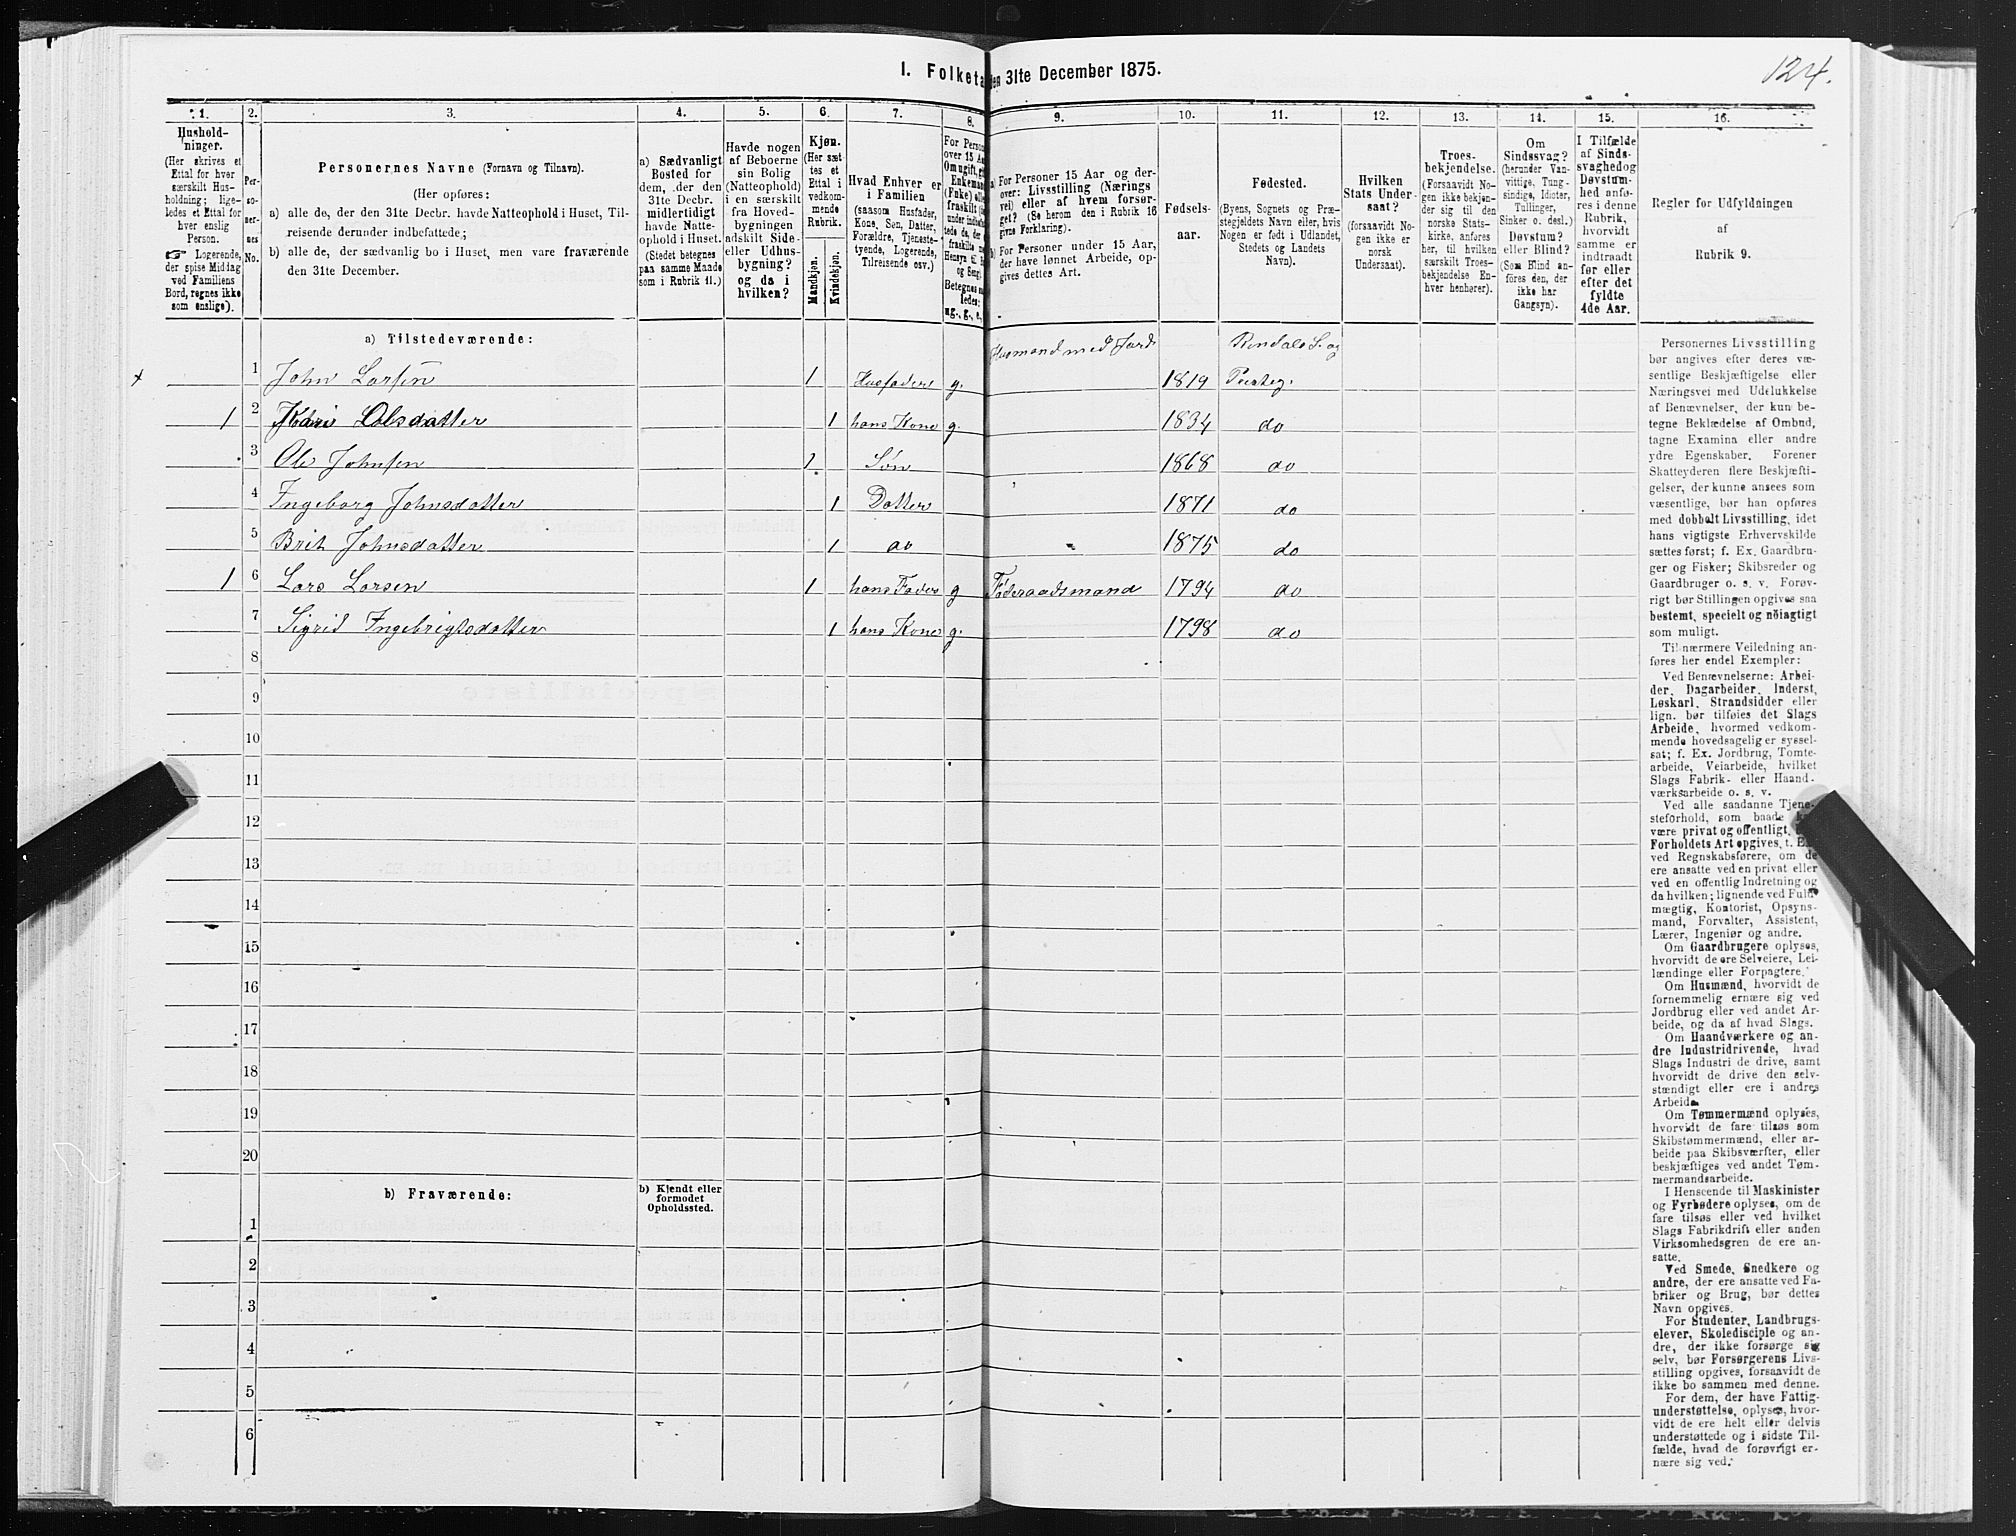 I. Folketæ
den 31te December 1875.
124.
1.
2.
3.
4.
5.
6.
7.
8.
9.
10.
11.
12.
13.
14.
15.
16.
Hushold-
ninger.
(Her skrives et
Ettal for hver
særskilt Hus-
holdning; lige-
ledes et Ettal for
hver enslig
Person.
☞ Logerende,
der spise Middag
ved Familiens
Bord, regnes ikke
som enslige).
Per-
so-
ner-
nes
No.
Personernes Navne (Fornavn og Tilnavn).
(Her opføres:
a) alle de, der den 31te Decbr. havde Natteophold i Huset, Til-
reisende derunder indbefattede;
b) alle de, der sædvanlig bo i Huset, men vare fraværende
den 31te December.
a) Sædvanligt
Bosted for
dem, der den
31te Decbr.
midlertidigt
havde Natte-
ophold i Huset.
(Stedet betegnes
paa samme Maade
som i Rubrik 11.)
Havde nogen
af Beboerne
sin Bolig
(Natteophold)
i en særskilt
fra Hoved-
bygningen
adskilt Side-
eller Udhus-
bygning?
og da i
hvilken?
Kjøn.
(Her sæt-
tes et
Ettal i
vedkom-
mende
Rubrik.
Mandkjøn.
Kvindekjøn.
Hvad Enhver er
i Familien
(saasom Husfader,
Kone, Søn, Datter,
Forældre, Tjeneste-
tyende, Logerende,
Tilreisende osv.)
For Person
over 15 Aa
Om ugift, g
Enkeman
(Enke) elle
fraskilt (h
under indbe
tede de, der e
fraskilte m
Hensyn til B
og Seng).
Betegnes s
ledes:
ug., g., e.,
a) For Personer 15 Aar og der-
over: Livsstilling (Nærings
vei) eller af hvem forsør-
get? (Se herom den i Rubrik 16
givne Forklaring).
b) For Personer under 15 Aar,
der have lønnet Arbeide, op-
gives dettes Art.
Fødsels-
aar.
Fødested.
(Byens, Sognets og Præ-
stegjeldets Navn eller, hvis
Nogen er født i Udlandet,
Stedets og Landets
Navn).
Hvilken
Stats Under-
saat?
(forsaavidt No-
gen ikke er
norsk
Undersaat).
Troes-
bekjendelse.
(Forsaavidt No-
gen ikke bekjen-
der sig til den
norske Stats-
kirke, anføres
her, til hvilken
særskilt Troes-
bekjendelse En-
hver henhører).
Om
Sindssvag?
(herunder Van-
vittige, Tung-
sindige, Idioter,
Tullinger,
Sinker o. desl.)
Døvstum?
eller Blind?
(Som Blind an-
føres den, der
ikke har
Gangsyn).
I Tilfælde
af Sinds-
svaghed og
Døvstum-
hed anfø-
res i denne
Rubrik,
hvorvidt
samme er
indtraadt
før eller
efter det
fyldte
4de Aar.
Regler for Udfyldningen
af
Rubrik 9.
a) Tilstedeværende:
Husmand med Jord
Rendals S. og
1 John Larsen 1 Husfader g. 1819 Præsteg.
1 2 Kari Olsdatter 1 hans Kone g. 1834 do
3 Ole Johnsen 1 Søn 1868 do
4 Ingeborg Johnsdatter 1 Datter 1871 do
5 Brit Johnsdatter 1 do 1875 do
1 6 Lars Larsen 1 hans Fader g Føderaadsmand 1794 do
7 Sigrid Ingebrigtsdatter 1 hans Kone g. 1798 do
8
9
10
11
12
13
14
15
16
17
18
19
20
b) Fraværende:
b) Kjendt eller
formodet
Opholdssted.
1
2
3
4
5
6
Personernes Livsstilling
bør angives efter deres væ-
sentlige Beskjæftigelse eller
Næringsvei med Udelukkelse
af Benævnelser, der kun be-
tegne Beklædelse af Ombud,
tagne Examina eller andre
ydre Egenskaber. Forener
Skatteyderen flere Beskjæfti-
gelser, der kunne ansees som
væsentlige, bør han opføres
med dobbelt Livsstilling, idet
hans vigtigste Erhvervskilde
sættes først; f. Ex. Gaardbru-
ger og Fisker; Skibsreder og
Gaardbruger o. s. v. Forøv-
rigt bør Stillingen opgives saa
bestemt, specielt og nøiagtigt
som muligt.
Til nærmere Veiledning an-
føres her endel Exempler:
Ved Benævnelserne: Arbei-
der, Dagarbeider, Inderst,
Løskarl, Strandsidder eller
lign. bør tilføies det Slags
Arbeide, hvormed vedkom-
mende hovedsagelig er syssel-
sat; f. Ex. Jordbrug, Tomte-
arbeide, Veiarbeide, hvilket
Slags Fabrik- eller Haand-
værksarbeide o. s. v.
Ved alle saadanne Tjene-
steforhold, som baade
være privat og offentligt,
Forholdets Art opgives, t. E
ved Regnskabsførere, om de
ere ansatte ved en privat eller
ved en offentlig Indretning og
da hvilken; lignende ved Fuld-
mægtig, Kontorist, Opsyns-
mand, Forvalter, Assistent,
Lærer, Ingeniør og andre.
Om Gaardbrugere oplyses,
hvorvidt de ere Selveiere, Lei-
lændinge eller Forpagtere.
Om Husmænd, hvorvidt de
fornemmelig ernære sig ved
Jordbrug eller ved andet Ar-
beide, og da af hvad Slags.
Om Haandværkere og an-
dre Industridrivende, hvad
Slags Industri de drive, samt
hvorvidt de drive den selv-
stændigt eller ere i andres
Arbeide.
Om Tømmermænd oplyses,
hvorvidt de fare tilsøs som
Skibstømmermænd, eller ar-
beide paa Skibsværfter, eller
beskjæftiges ved andet Tøm-
mermandsarbeide.
I Henseende til Maskinister
og Fyrbødere oplyses, om de
fare tilsøs eller ved hvilket
Slags Fabrikdrift eller anden
Virksomhedsgren de ere an-
satte.
Ved Smede, Snedkere og
andre, der ere ansatte ved Fa-
briker og Brug, bør dettes
Navn opgives.
For Studenter, Landbrugs-
elever, Skoledisciple og an-
dre, der ikke forsørge sig
selv, bør Forsørgerens Livs-
stilling opgives, forsaavidt de
ikke bo sammen med denne.
For dem, der have Fattig-
understøttelse, oplyses, hvor-
vidt de ere helt eller delvis
understøttede og i sidste Til-
fælde, hvad de forøvrigt er-
nære sig ved.